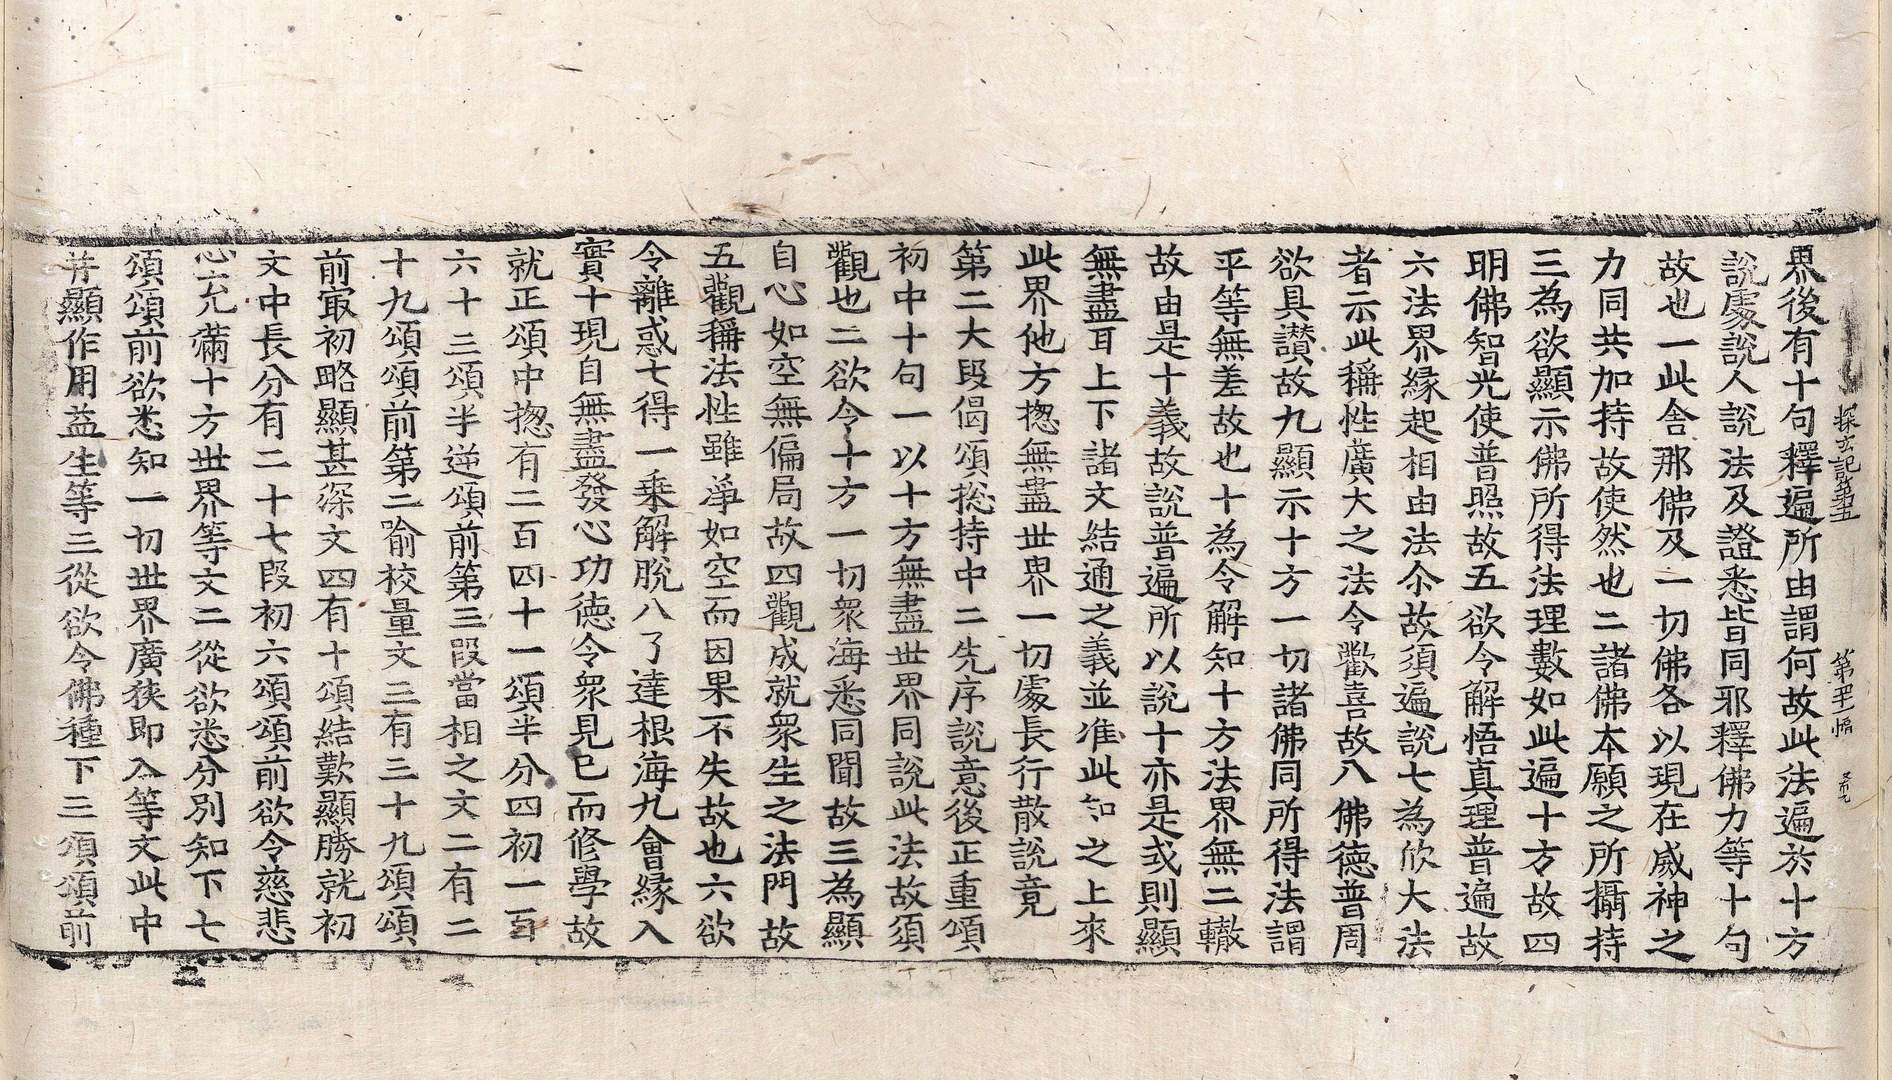 探玄記第五 第四十幅
界後有十句釋遍所由謂何故此法遍於十方
說處說人說法及證悉皆同邪釋佛力等十句
故也一此舍那佛及一切佛各以現在威神之
力同共加持故使然也二諸佛本願之所攝持
三為欲顯示佛所得法理數如此遍十方故四
明佛智光使普照故五欲令解悟真理普遍故
六法界緣起相由法尒故須遍說七為欣大法
者示此稱性廣大之法令歡喜故八佛德普周
欲具讃故九顯示十方一切諸佛同所得法謂
平等無差故也十為令解知十方法界無二轍
故由是十義故說普遍所以說十亦是或則顯
無盡耳上下諸文結通之義並准此知之上來
此界他方揔無盡世界一切處長行散說竟
第二大段偈頌揔持中二先序說意後正重頌
初中十句一以十方無盡世界同說此法故須
觀也二欲令十方一切衆海悉同聞故三為顯
自心如空無偏局故四觀成就衆生之法門故
五觀稱法性雖淨如空而因果不失故也六欲
令離惑七得一乘解脫八了達根海九會緣入
實十現自無盡發心功德令衆見已而修學故
就正頌中揔有二百四十一頌半分四初一百
六十三頌半逆頌前第三段當相之文二有二
十九頌頌前第二喻校量文三有三十九頌頌
前㝡初略顯甚深文四有十頌結歎顯勝就初
文中長分有二十七段初六頌頌前欲令慈悲
心充滿十方世界等文二從欲悉分別知下七
頌頌前欲悉知一切世界廣狹即入等文此中
并顯作用益生等三從欲令佛種下三頌頌前